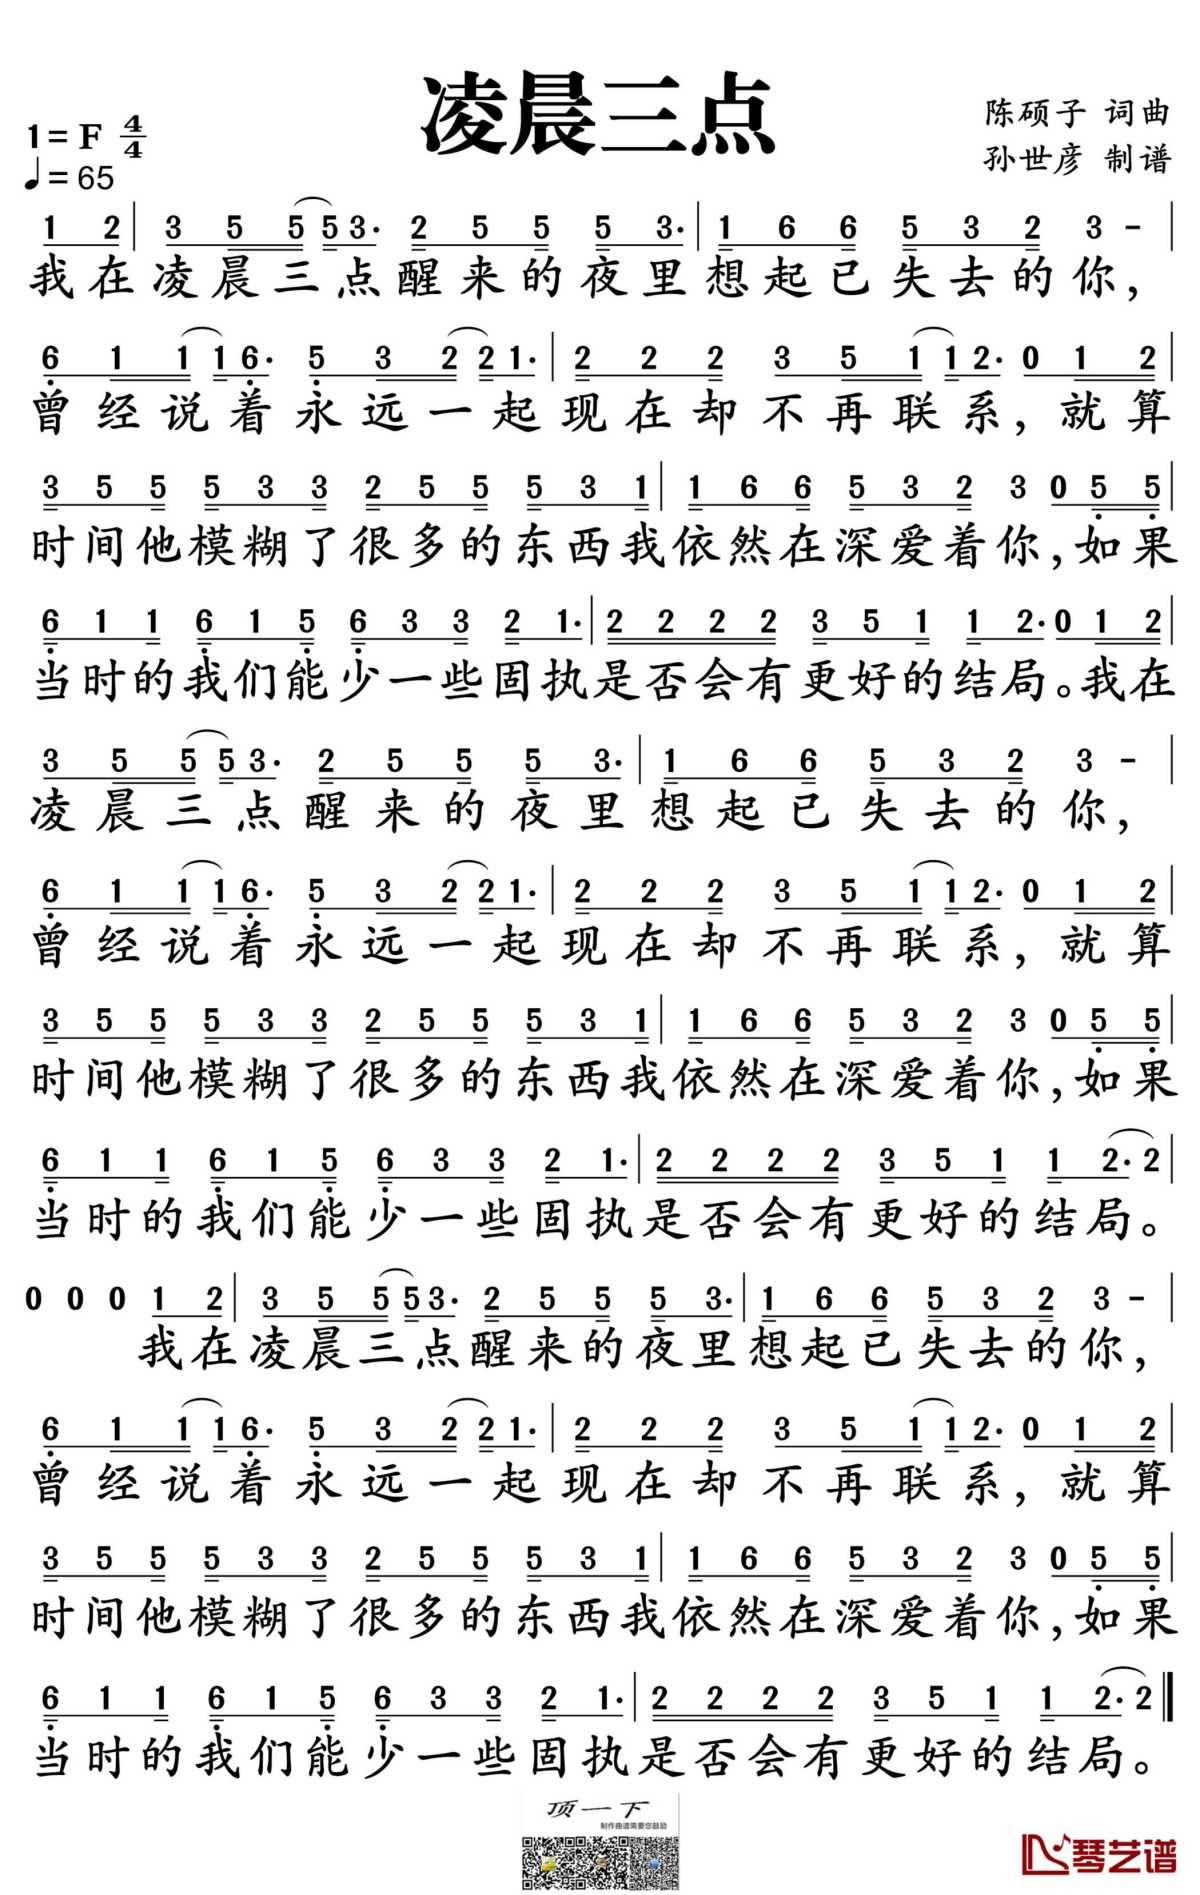 凌晨三点
1=F 4/4
♩=65
陈硕子 词曲
孙世彦 制谱
1 2 | 3 5 5 5 3· 2 5 5 5 3· | 1 6 6 5 3 2 3 - |
我在凌晨三点醒来的夜里想起已失去的你，
6 1 1 1 6· 5 3 2 2 1· | 2 2 2 3 5 1 1 2· 0 1 2 |
曾经说着永远一起现在却不再联系，就算
3 5 5 5 3 3 2 5 5 5 3 1 | 1 6 6 5 3 2 3 0 5 5 |
时间他模糊了很多的东西我依然在深爱着你，如果
6 1 1 6 1 5 6 3 3 2 1· | 2 2 2 2 3 5 1 1 2· 0 1 2 |
当时的我们能少一些固执是否会有更好的结局。我在
3 5 5 5 3· 2 5 5 5 3· | 1 6 6 5 3 2 3 - |
凌晨三点醒来的夜里想起已失去的你，
6 1 1 1 6· 5 3 2 2 1· | 2 2 2 3 5 1 1 2· 0 1 2 |
曾经说着永远一起现在却不再联系，就算
3 5 5 5 3 3 2 5 5 5 3 1 | 1 6 6 5 3 2 3 0 5 5 |
时间他模糊了很多的东西我依然在深爱着你，如果
6 1 1 6 1 5 6 3 3 2 1· | 2 2 2 2 3 5 1 1 2· 2 |
当时的我们能少一些固执是否会有更好的结局。
0 0 0 1 2 | 3 5 5 5 3· 2 5 5 5 3· | 1 6 6 5 3 2 3 - |
我在凌晨三点醒来的夜里想起已失去的你，
6 1 1 1 6· 5 3 2 2 1· | 2 2 2 3 5 1 1 2· 0 1 2 |
曾经说着永远一起现在却不再联系，就算
3 5 5 5 3 3 2 5 5 5 3 1 | 1 6 6 5 3 2 3 0 5 5 |
时间他模糊了很多的东西我依然在深爱着你，如果
6 1 1 6 1 5 6 3 3 2 1· | 2 2 2 2 3 5 1 1 2· 2 ‖
当时的我们能少一些固执是否会有更好的结局。
顶一下
制作曲谱需要您鼓励
琴艺谱